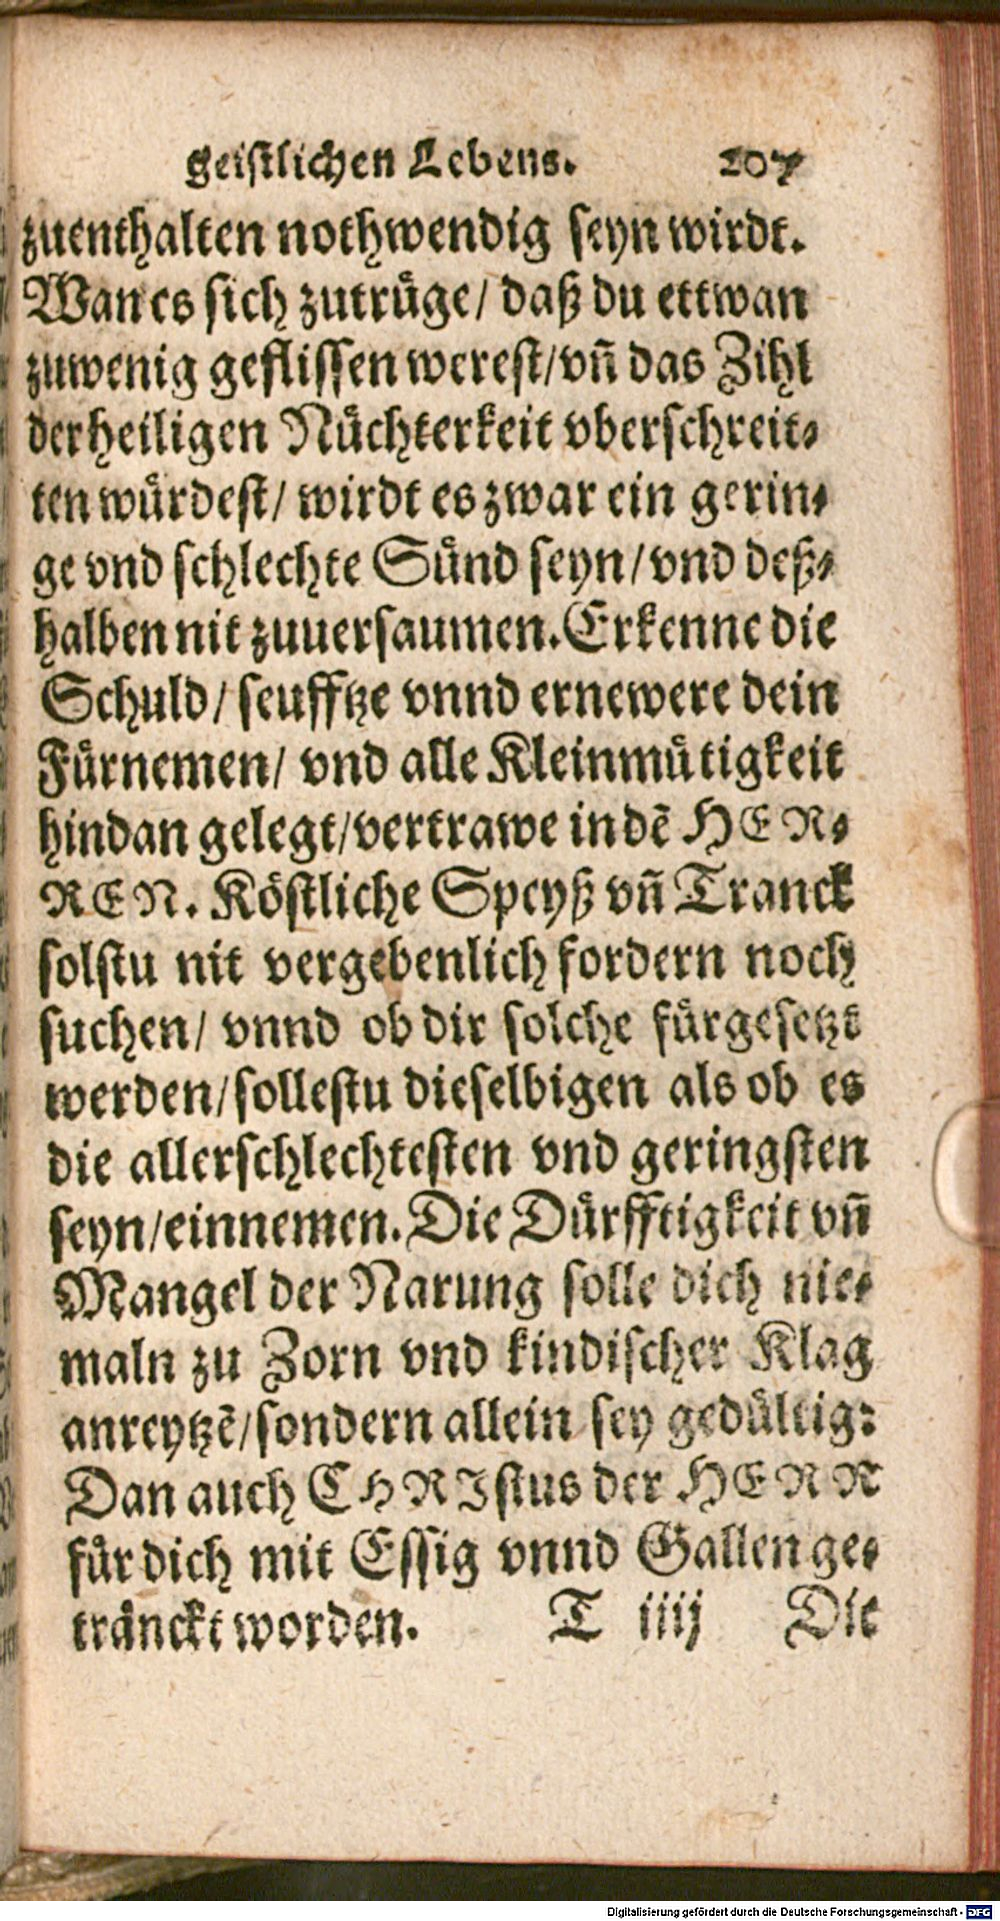 geistlichen Lebens. 207
zuenthalten nothwendig seyn wirdt.
Wan es sich zutrüge/ daß du ettwan
zuwenig geflissen werest/ vñ das Zihl
der heiligen Nüchterkeit vberschreit⸗
ten würdest/ wirdt es zwar ein gerin⸗
ge vnd schlechte Sünd seyn/ vnd deß⸗
halben nit zuuersaumen. Erkenne die
Schuld/ seufftze vnnd ernewere dein
Fürnemen/ vnd alle Kleinmütigkeit
hindan gelegt/ vertrawe in dẽ HER⸗
REN. Köstliche Speyß vñ Tranck
solstu nit vergebenlich fordern noch
suchen/ vnnd ob dir solche fürgesetzt
werden/ sollestu dieselbigen als ob es
die allerschlechtesten vnd geringsten
seyn/ einnemen. Die Dürfftigkeit vñ
Mangel der Narung solle dich nie⸗
maln zu Zorn vnd kindischer Klag
anreytzẽ/ sondern allein sey gedültig:
Dan auch CHRIstus der HERR
für dich mit Essig vnnd Gallen ge⸗
tränckt worden. T iiij Die
Digitalisierung gefördert durch die Deutsche Forschungsgemeinschaft - DFG